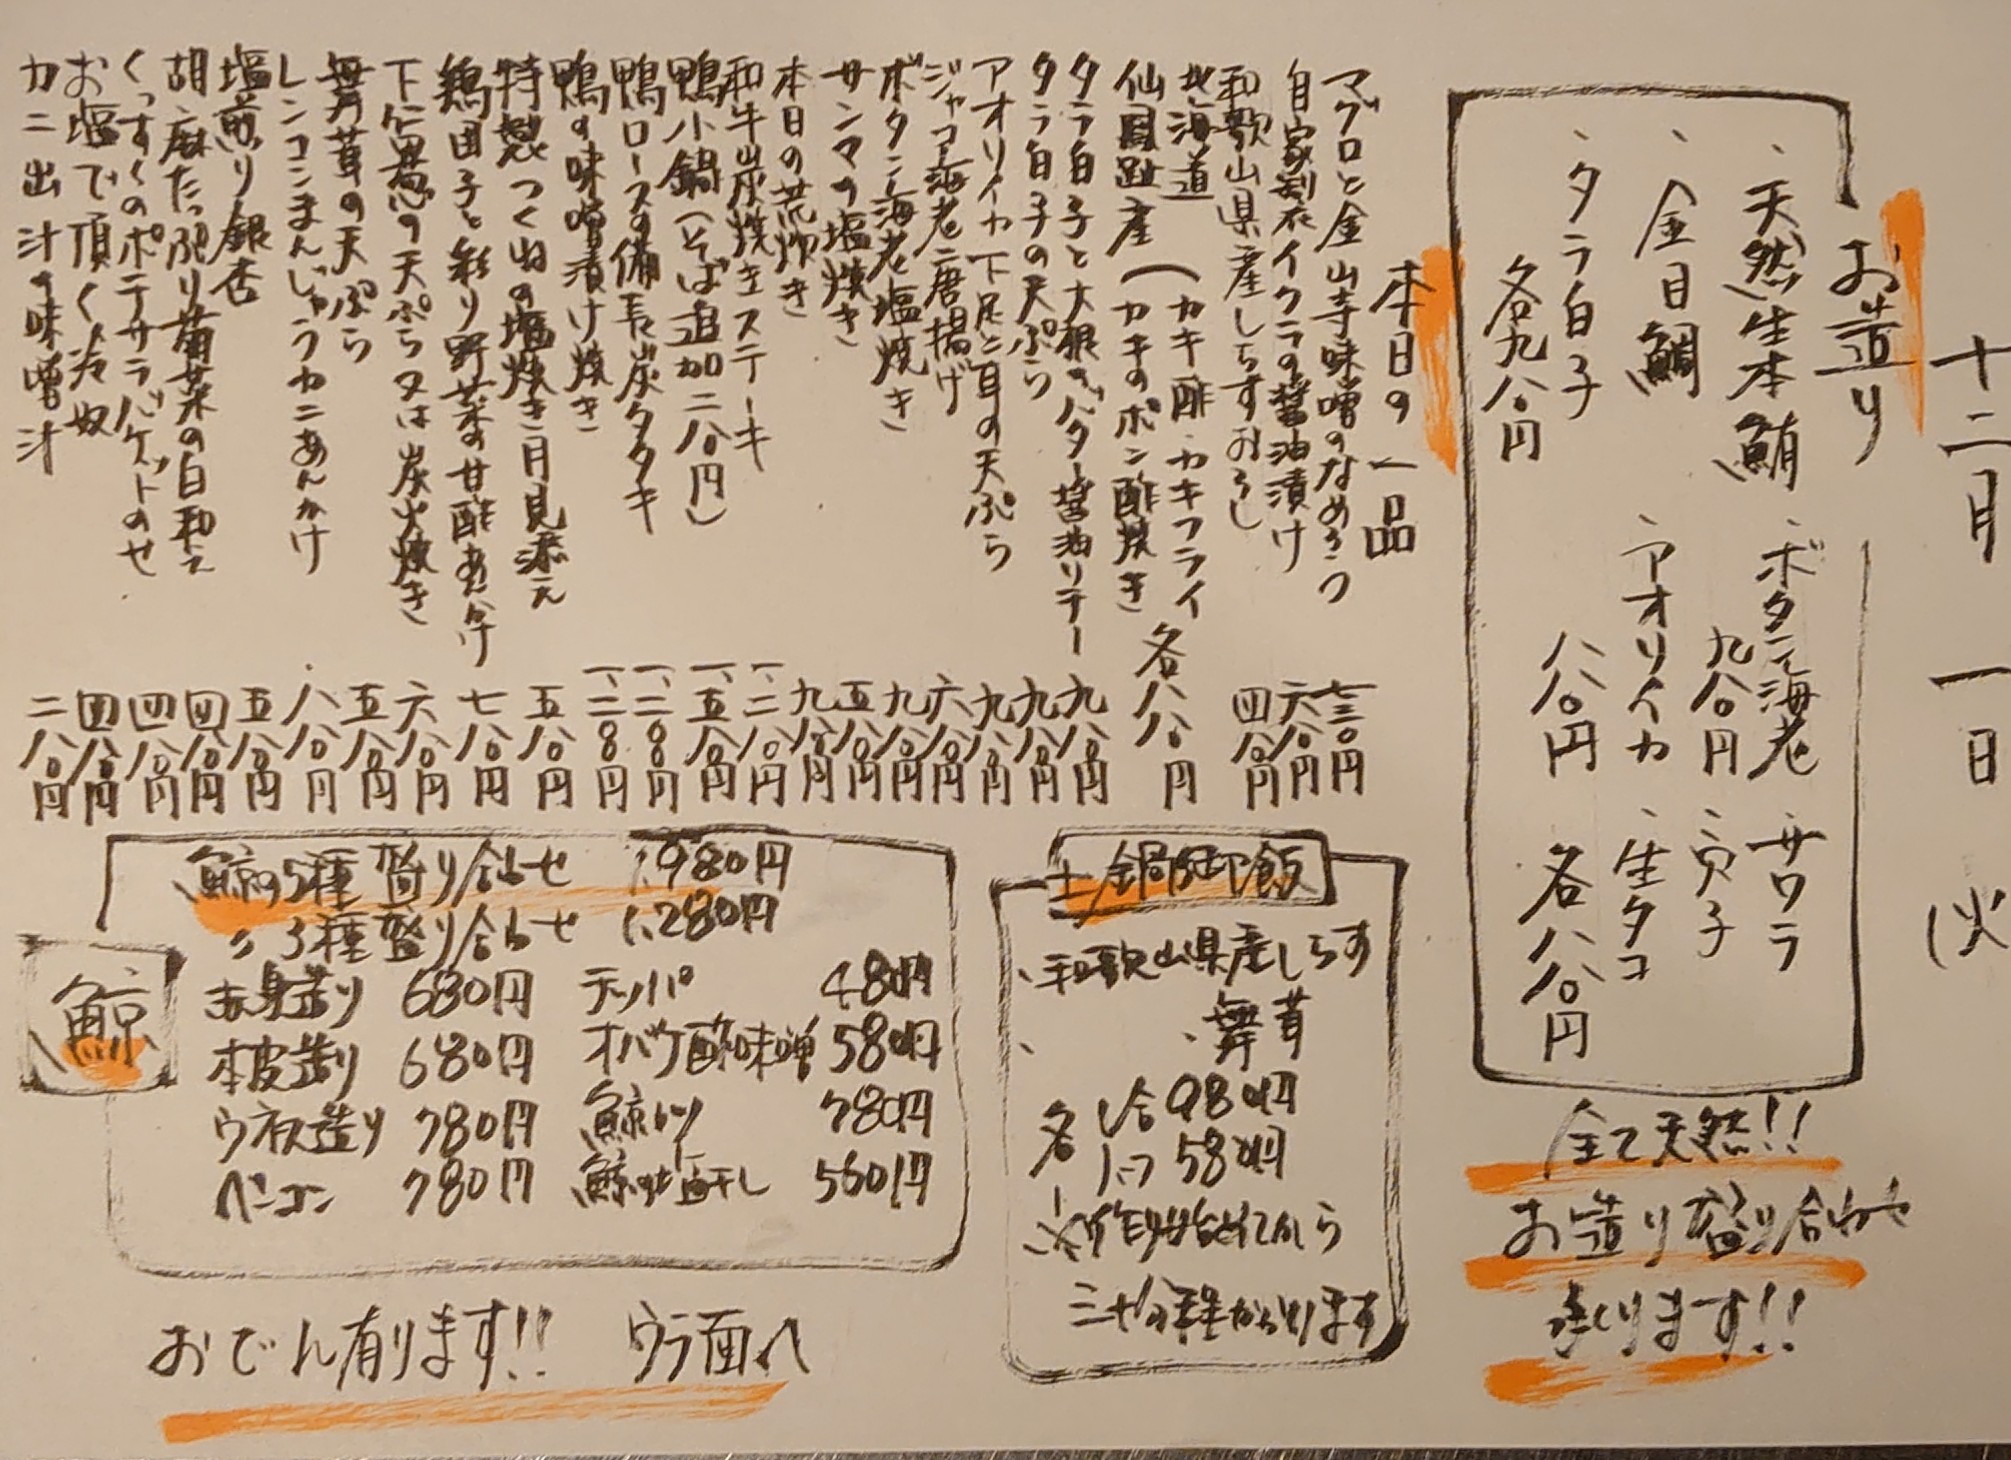 十二月 一日 (火
お造り
、天然生本鮪
、金目鯛
、タラ白子
各九八〇円
、ボタン海老
九八〇円
、アオリイカ
八八〇円
、サワラ
、穴子
、生タコ
各八八〇円
全て天然!!
お造り盛り合わせ
承ります!!
本日の一品
マグロと金山寺味噌のなめろう 七三〇円
自家製イクラの醤油漬け 六八〇円
和歌山県産しらすおろし 四八〇円
北海道
仙鳳趾産(カキ酢・カキフライ
カキのポン酢焼き 各八八〇円
タラ白子と大根のバター醤油ソテー 九八〇円
タラ白子の天ぷら 九八〇円
アオリイカ下足と耳の天ぷら 九八〇円
ジャコ海老二唐揚げ 六八〇円
ボタン海老塩焼き 九八〇円
サンマの塩焼き 五八〇円
本日の荒炊き 九八〇円
和牛炭焼きステーキ 一、二八〇円
鴨小鍋(そば追加二八〇円) 一、五八〇円
鴨ロースの備長炭タタキ 一、二〇〇円
鴨の味噌漬け焼き 一、二〇〇円
特製つくねの塩焼き月見添え 五八〇円
鶏団子と彩り野菜の甘酢あんかけ 七八〇円
下仁田葱の天ぷら又は炭火焼き 六八〇円
舞茸の天ぷら 五八〇円
レンコンまんじゅうカニあんかけ 八八〇円
塩煎り銀杏 五八〇円
胡麻たっぷり菊菜の白和え 四八〇円
くっすくのポテサラバケットのせ 四八〇円
お塩で頂く冷奴 四八〇円
カニ出汁の味噌汁 二八〇円
土鍋御飯
、和歌山県産しらす
、舞茸
各 一合 980円
ハーフ 580円
※作り始めてから
三十分程かかります
鯨
鯨の5種盛り合せ 1,980円
〃 3種盛り合せ 1,280円
赤身造り 680円
本皮造り 680円
ウネス造り 780円
ベーコン 780円
テッパ 480円
オバケ酢味噌 580円
鯨カツ 780円
鯨の塩干し 580円
おでん有ります!! ウラ面へ